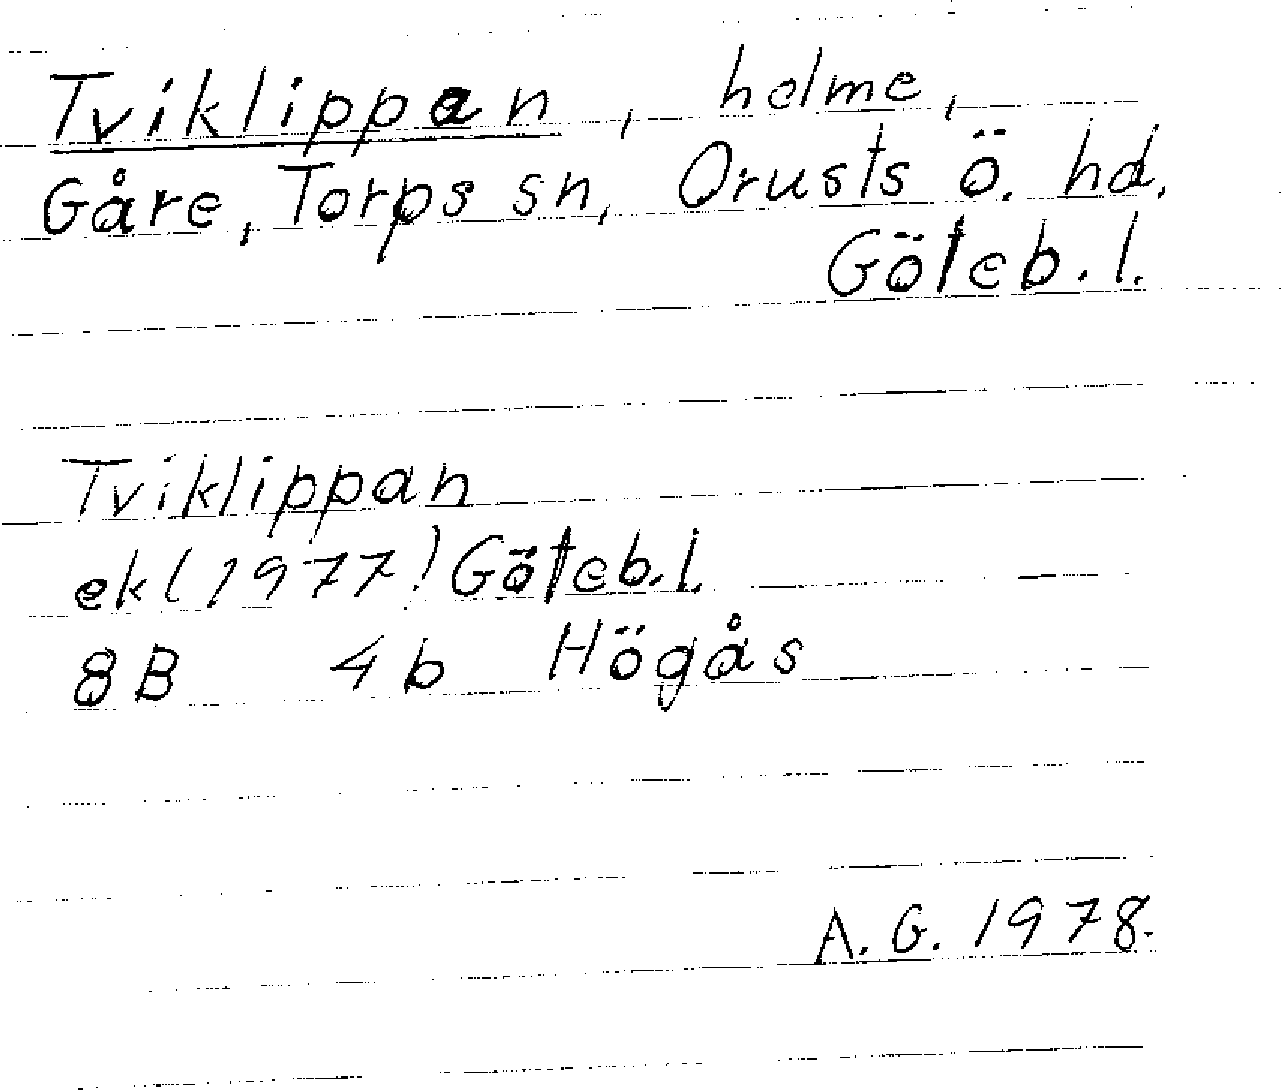 Tviklippan, holme,
Gåre, Torps sn, Orusts ö. hd,
Göteb. l.
Tviklippan
ek (1977) Göteb. l.
8B 4b Högås
A. G. 1978.